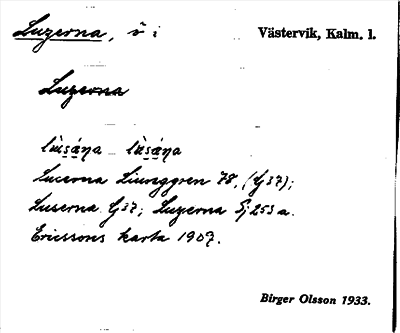 Luzerna, ö i Västervik, Kalm. l.
Luzerna
Lucerna Ljunggren 78, (G 37);
Luserna G 37; Luzerna Sj 253 a.
Ericssons karta 1907.
Birger Olsson 1933.